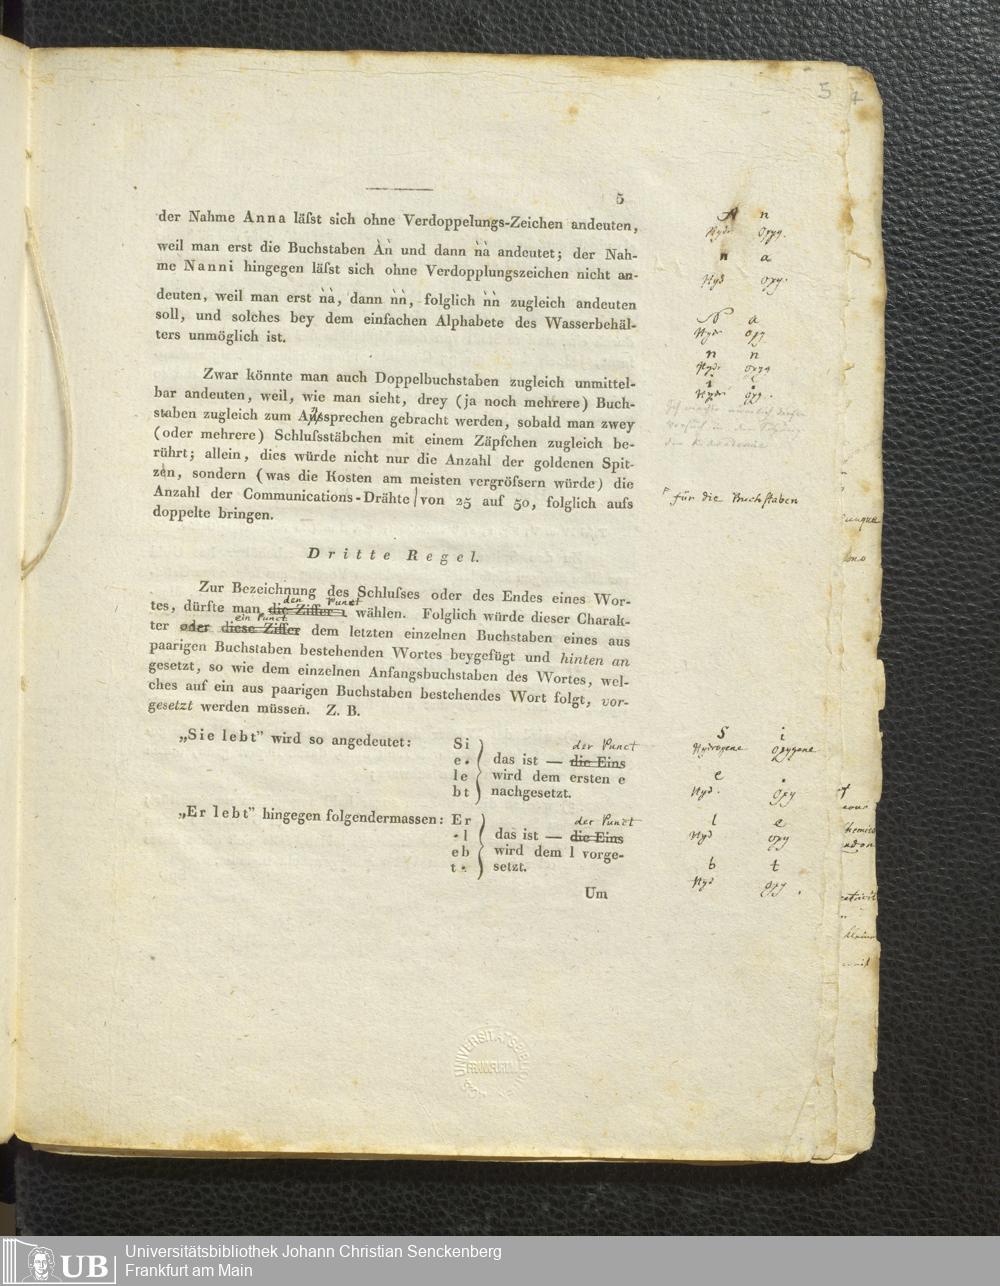 5 7
5
der Nahme Anna läſst sich ohne Verdoppelungs-Zeichen andeuten,
weil man erst die Buchstaben Àǹ und dann ǹà andeutet; der Nah-
me Nanni hingegen läſst sich ohne Verdopplungszeichen nicht an-
deuten, weil man erst ǹà, dann ǹǹ, folglich ǹǹ zugleich andeuten
soll, und solches bey dem einfachen Alphabete des Wasserbehäl-
ters unmöglich ist.
Zwar könnte man auch Doppelbuchstaben zugleich unmittel-
bar andeuten, weil, wie man sieht, drey (ja noch mehrere) Buch-
staben zugleich zum Aussprechen gebracht werden, sobald man zwey
(oder mehrere) Schluſsstäbchen mit einem Zäpfchen zugleich be-
rührt; allein, dies würde nicht nur die Anzahl der goldenen Spit-
zen, sondern (was die Kosten am meisten vergröſsern würde) die
Anzahl der Communications-Drähte von 25 auf 50, folglich aufs
doppelte bringen.
Dritte Regel.
Zur Bezeichnung des Schluſses oder des Endes eines Wor-
den Punct
tes, dürfte man die Ziffer 1 wählen. Folglich würde dieser Charak-
ein Punct
ter oder diese Ziffer dem letzten einzelnen Buchstaben eines aus
paarigen Buchstaben bestehenden Wortes beygefügt und hinten an
gesetzt, so wie dem einzelnen Anfangsbuchstaben des Wortes, wel-
ches auf ein aus paarigen Buchstaben bestehendes Wort folgt, vor-
gesetzt werden müssen. Z. B.
„Sie lebt" wird so angedeutet: Si
der Punct
e. das ist — die Eins
le wird dem ersten e
bt nachgesetzt.
„Er lebt" hingegen folgendermassen: Er
der Punct
. l das ist — die Eins
eb wird dem l vorge-
t . setzt.
Um
A n
Hydr Oxyg.
n a
Hyd oxy.
N a
Hydr oxy
n n
Hydr oxyg
i .
Hydr oxy.
für die Buchstaben
S i
Hydrogene Oxygene
e .
Hyd. Oxy
l e
Hyd oxy
b t
Hyd oxy.
UNIVERSITÄTSBIBLIOTHEK
FRANKFURT A.M.
UB
Universitätsbibliothek Johann Christian Senckenberg
Frankfurt am Main